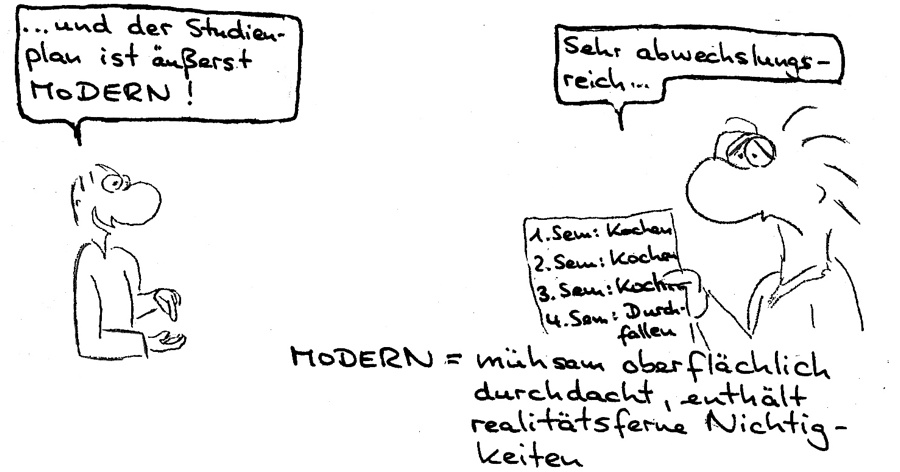 ...und der Studien-
plan ist äußerst
MODERN!
Sehr abwechslungs-
reich...
1. Sem: Kochen
2. Sem: Kochen
3. Sem: Kochen
4. Sem: Durch-
fallen
MODERN = mühsam oberflächlich
durchdacht, enthält
realitätsferne Nichtig-
keiten